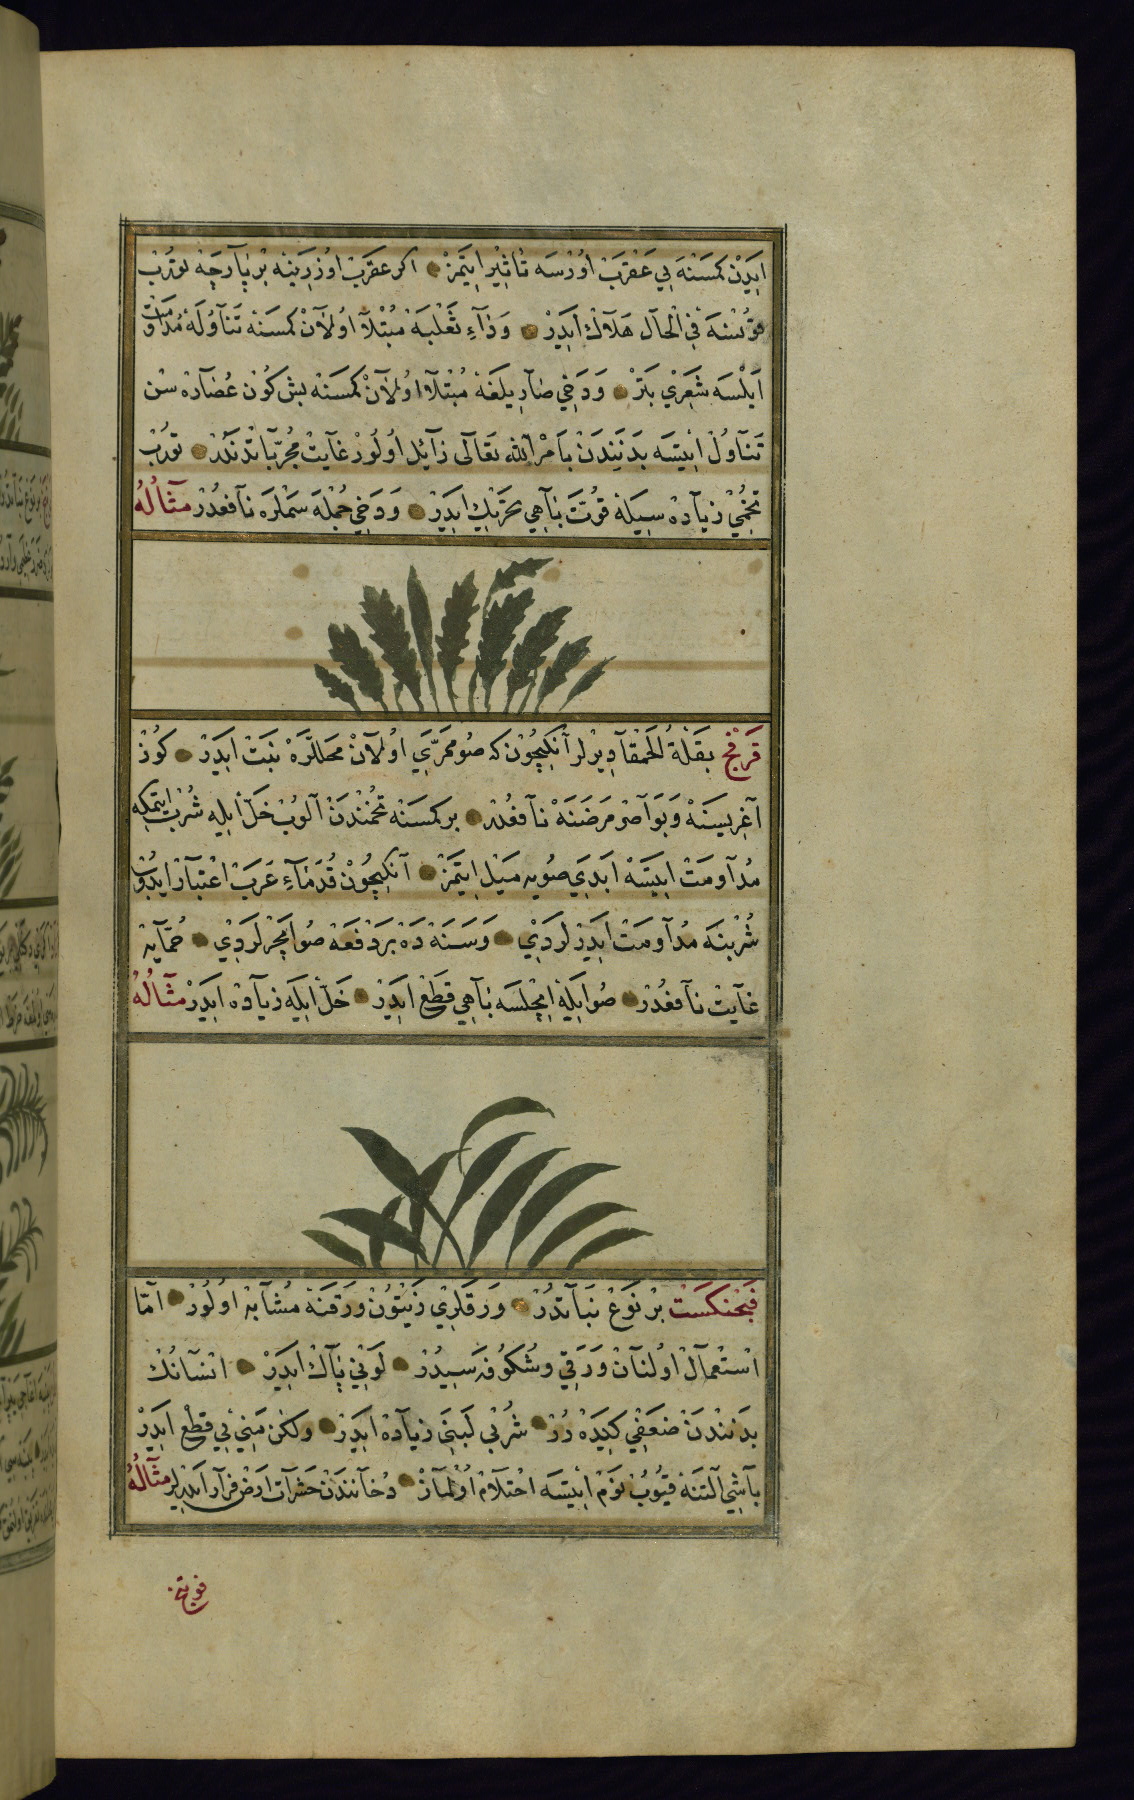 ایدن کمسنه یی عقرب اورسه تأثیر ایتمز اکر عقرب اوزرینه بر پارچه ترب
قونسه فی الحال هلاک ایدر و داء ثعلبه مبتلا اولان کمسنه تناوله مداومت
ایلسه شعری بتر و دخی صاریلغه مبتلا اولان کمسنه بش کون عصاره سن
تناول ایتسه بدنندن بامر الله تعالی زائل اولور غایت مجرباتدندر ترب
تخمی زیاده سیله قوت باهی تحریک ایدر و دخی جمله سملره نافعدر مثاله
قرفخ بقلة الحمقا دیرلر آنکیچون که صو ممری اولان محللرده نبت ایدر کوز
آغریسنه و بواصر مرضنه نافعدر بر کمسنه تخمندن آلوب خل ایله شرب ایتمکه
مداومت ایتسه ابدی صویه میل ایتمز آنکیچون قدماء عرب اعتبار ایدوب
شربنه مداومت ایدرلردی و سنه ده بر دفعه صو ایچرلردی حمایه
غایت نافعدر صو ایله ایچلسه باهی قطع ایدر خل ایله زیاده ایدر مثاله
فنجنکست بر نوع نباتدر ورقلری زیتون ورقنه مشابه اولور اما
استعمال اولنان ورقی و شکوفه سیدر لونی پاک ایدر انسانک
بدنندن ضعفی کیده رر شربی لبنی زیاده ایدر ولکن منی یی قطع ایدر
باشی آلتنه قیوب نوم ایتسه احتلام اولماز دخانندن حشرات ارض فرار ایدرلر مثاله
فوتنج